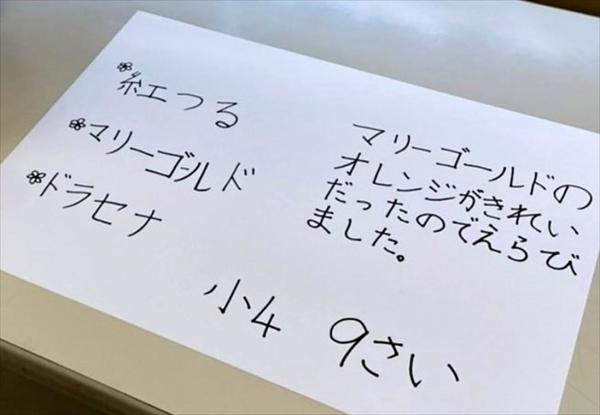 紅つる
マリーゴールド
ドラセナ
マリーゴールドの
オレンジがきれい
だったのでえらび
ました。
小4 9さい